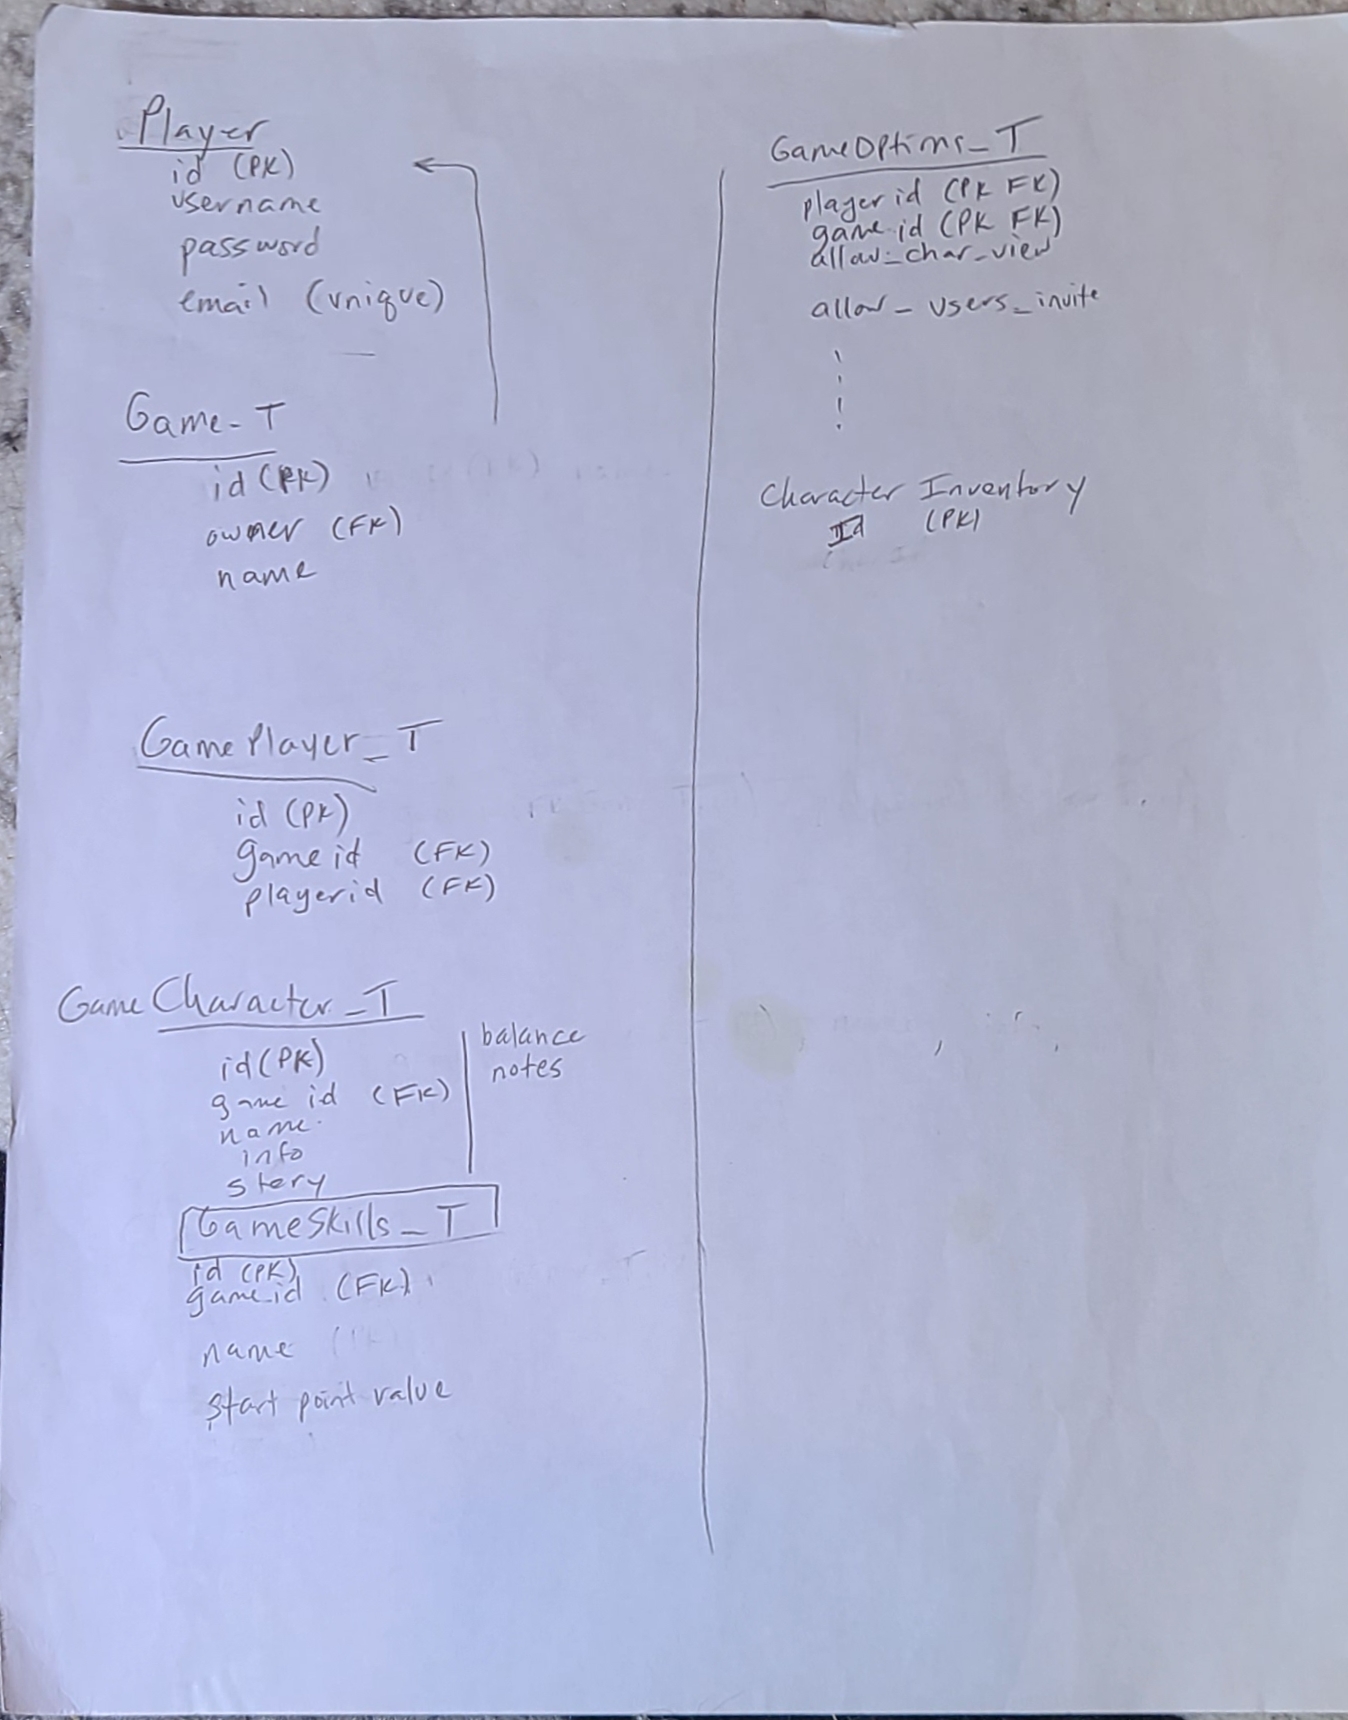 Player
id (PK)
username
password
email (unique)
Game_T
id (PK)
owner (FK)
name
GamePlayer_T
id (PK)
game id (FK)
playerid (FK)
GameCharacter_T
id (PK)
game id (FK)
name
info
story
balance
notes
GameSkills_T
id (PK)
game_id (FK)
name
start point value
GameOptions_T
player id (PK FK)
game id (PK FK)
allow_char_view
allow_users_invite
Character Inventory
Id (PK)